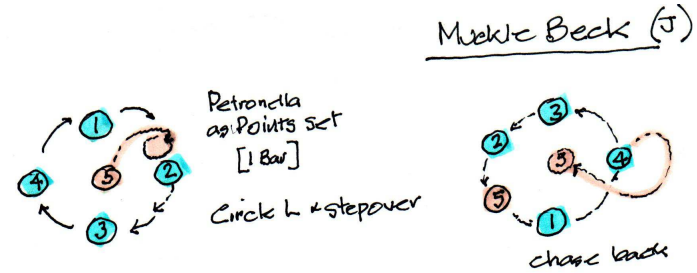 Muckle Beck (J)
Petronella
as Points set
[1 Bar]
Circle L & stepover
1
2
3
4
5
3
2
4
5
5
1
chase back